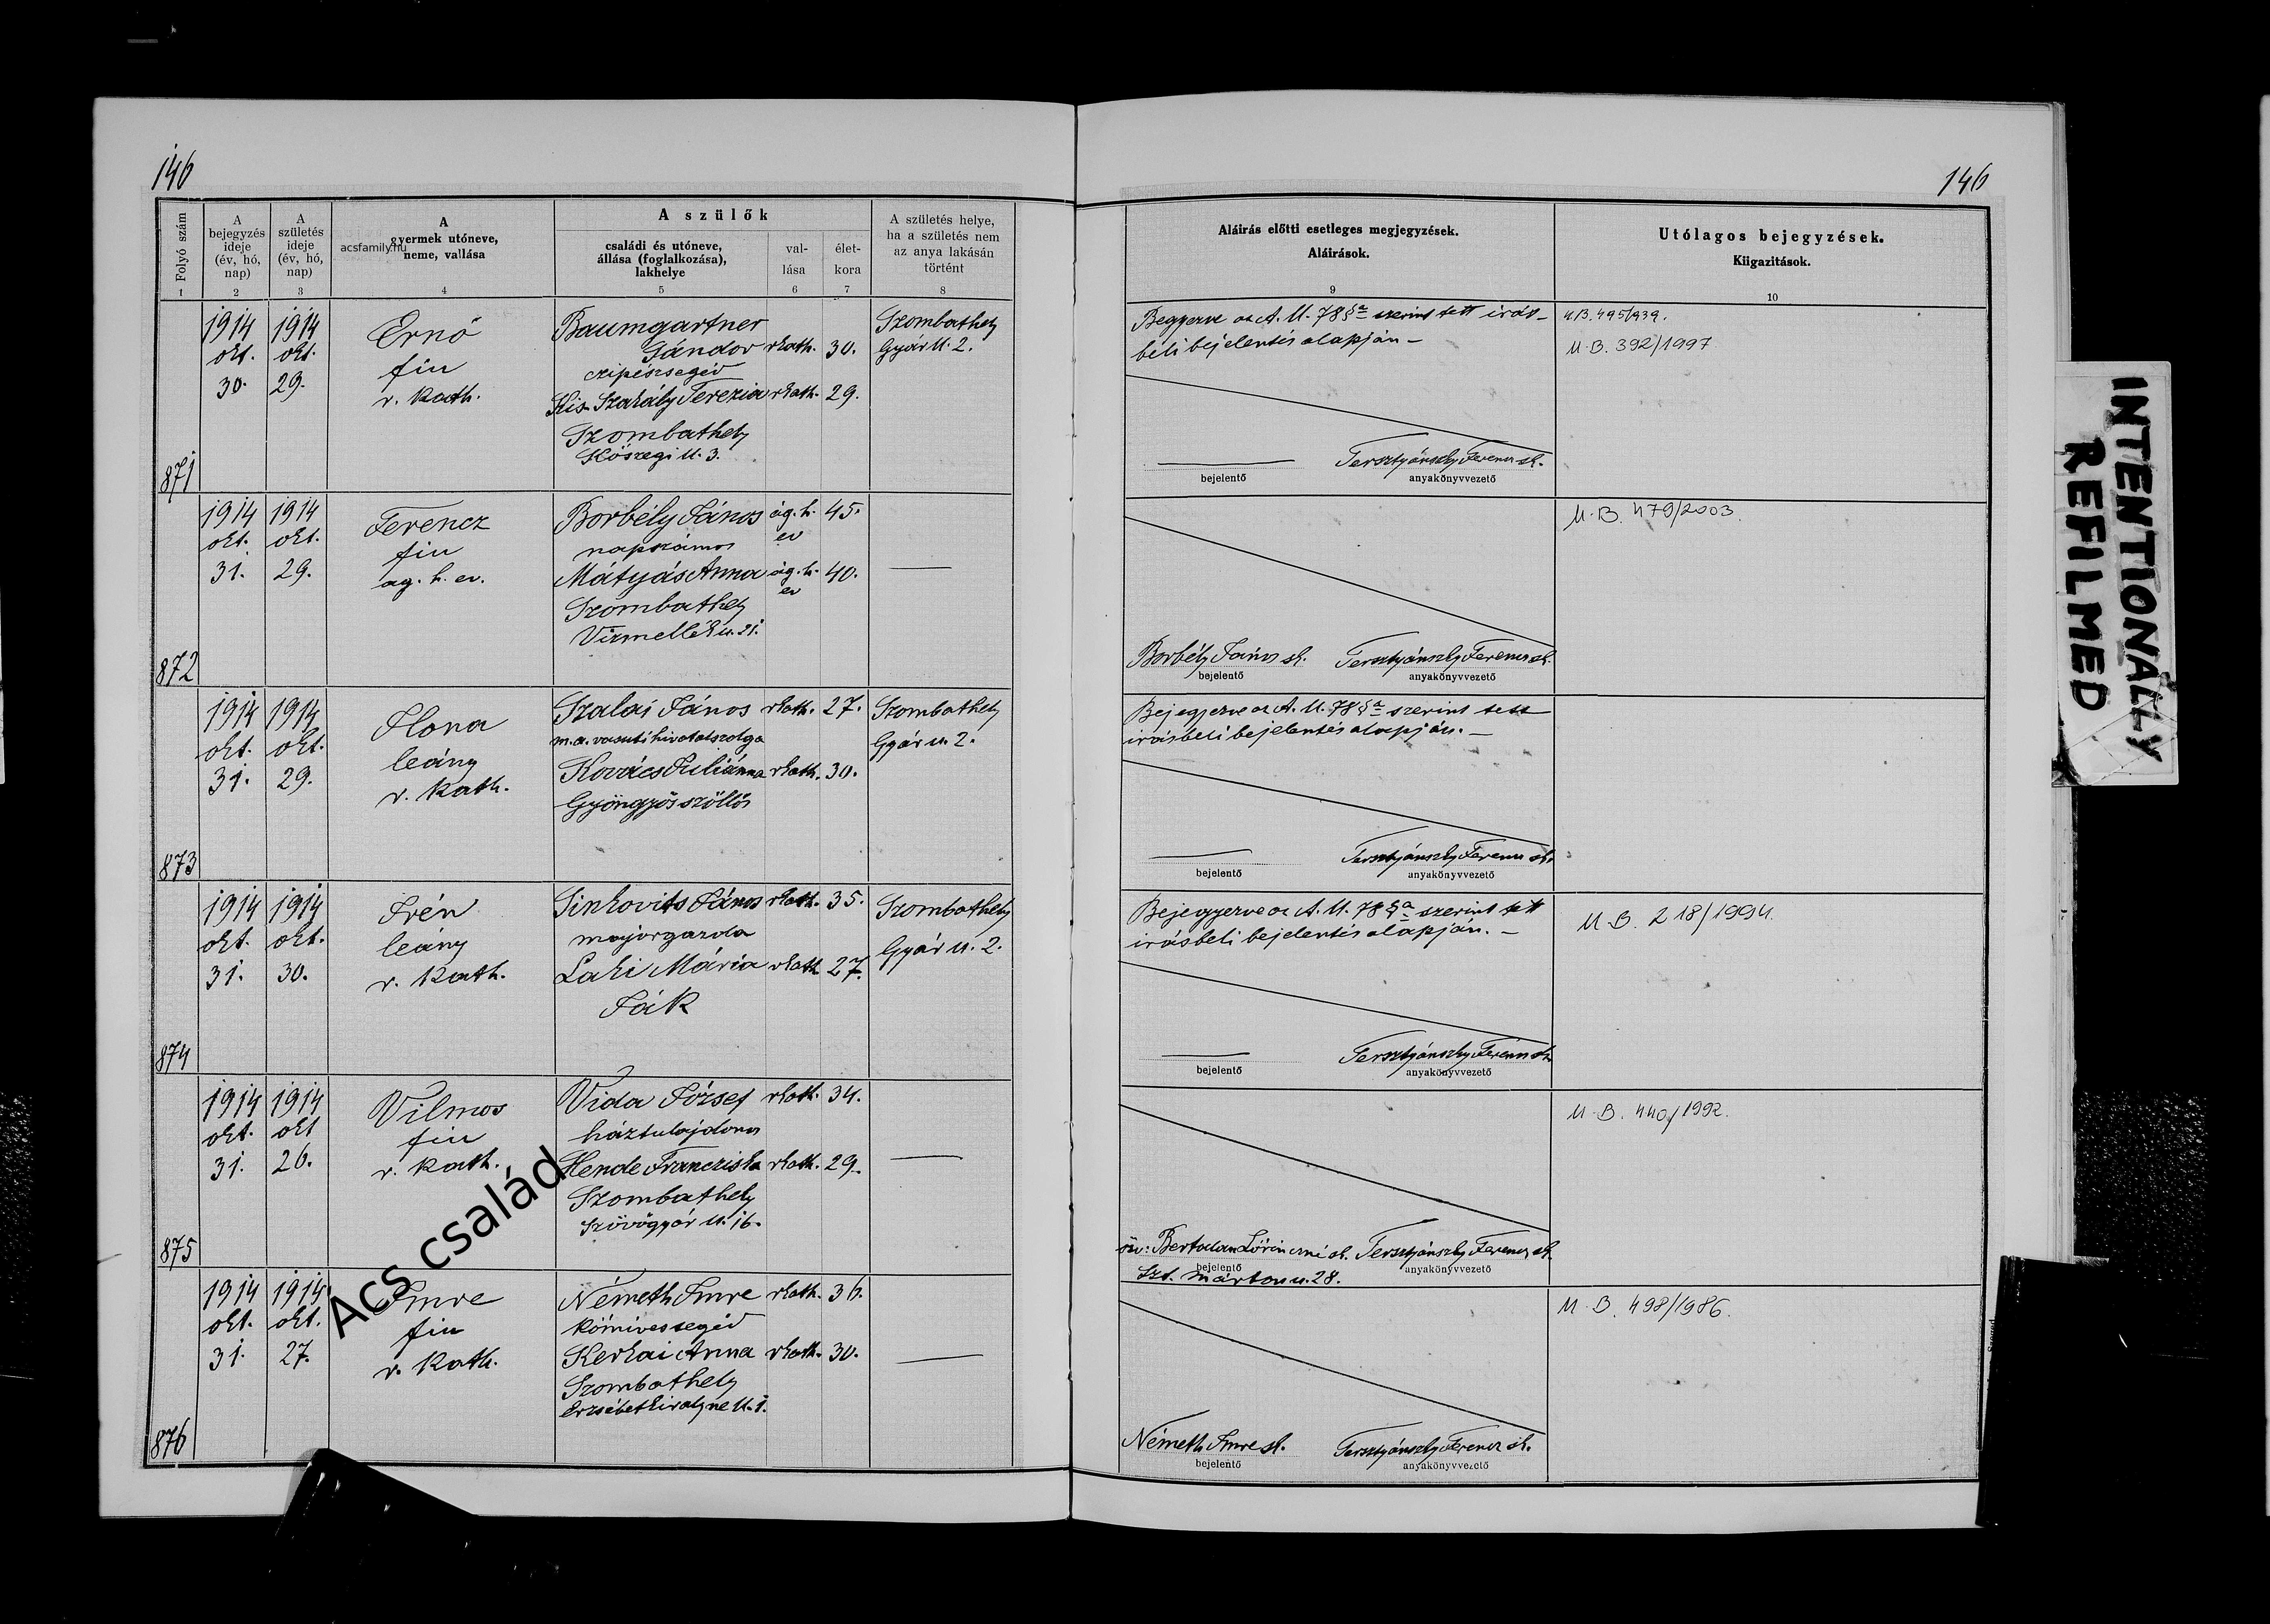 146
146
Folyó szám
A bejegyzés ideje (év, hó, nap)
A születés ideje (év, hó, nap)
A gyermek utóneve, neme, vallása
acsfamily.hu
A szülők
családi és utóneve, állása (foglalkozása), lakhelye
vallása
életkora
A születés helye, ha a születés nem az anya lakásán történt
Aláírás előtti esetleges megjegyzések.
Aláírások.
Utólagos bejegyzések.
Kiigazitások.
1 2 3 4 5 6 7 8 9 10
871
1914 okt. 30.
1914 okt. 29.
Ernő
fiu
r. kath.
Baumgartner
Sándor rkath. 30.
czipészsegéd
Kis Szakály Terezia rkath. 29.
Szombathely
Kőszegi u. 3.
Szombathely
Gyár u. 2.
Bejegyezve az A. U. 78 §a szerint tett irás-
beli bejelentés alapján –
bejelentő
Tersztyánszky Ferencz sk.
anyakönyvvezető
U.B. 495/939.
U.B. 392/1997
872
1914 okt. 31.
1914 okt. 29.
Ferencz
fiu
ág. h. ev.
Borbély János ág. h. ev 45.
napszámos
Mátyás Anna ág. h. ev 40.
Szombathely
Vizmellék u. 21.
Borbély János sk.
bejelentő
Tersztyánszky Ferencz sk.
anyakönyvvezető
U.B. 479/2003.
873
1914 okt. 31.
1914 okt. 29.
Ilona
leány
r. kath.
Szalai János rkath. 27.
m. á. vasuti hivatalszolga
Kovács Juliánna rkath. 30.
Gyöngyösszőllős
Szombathely
Gyár u. 2.
Bejegyezve az A. U. 78 §a szerint tett
irásbeli bejelentés alapján. –
bejelentő
Tersztyánszky Ferencz sk.
anyakönyvvezető
874
1914 okt. 31.
1914 okt. 30.
Irén
leány
r. kath.
Sinkovits János rkath. 35.
majorgazda
Laki Mária rkath 27.
Ják
Szombathely
Gyár u. 2.
Bejegyezve az A. U. 78 §a szerint tett
irásbeli bejelentés alapján. –
bejelentő
Tersztyánszky Ferencz sk.
anyakönyvvezető
U.B. 218/1994.
875
1914 okt. 31.
1914 okt 26.
Vilmos
fiu
r. kath.
Vida József rkath. 34.
háztulajdonos
Hende Franciska rkath. 29.
Szombathely
Szövőgyár u. 16.
özv: Bertalan Lőrinczné sk.
bejelentő
Szt. Márton u. 28.
Tersztyánszky Ferencz sk.
anyakönyvvezető
U.B. 440/1992.
876
1914 okt. 31.
1914 okt. 27.
Imre
fiu
r. kath.
Németh Imre rkath. 36.
kőmivessegéd
Kerkai Anna rkath. 30.
Szombathely
Erzsébet királyné u. 1.
Németh Imre sk.
bejelentő
Tersztyánszky Ferencz sk.
anyakönyvvezető
U.B. 498/1986.
Acs család
INTENTIONALLY
REFILMED